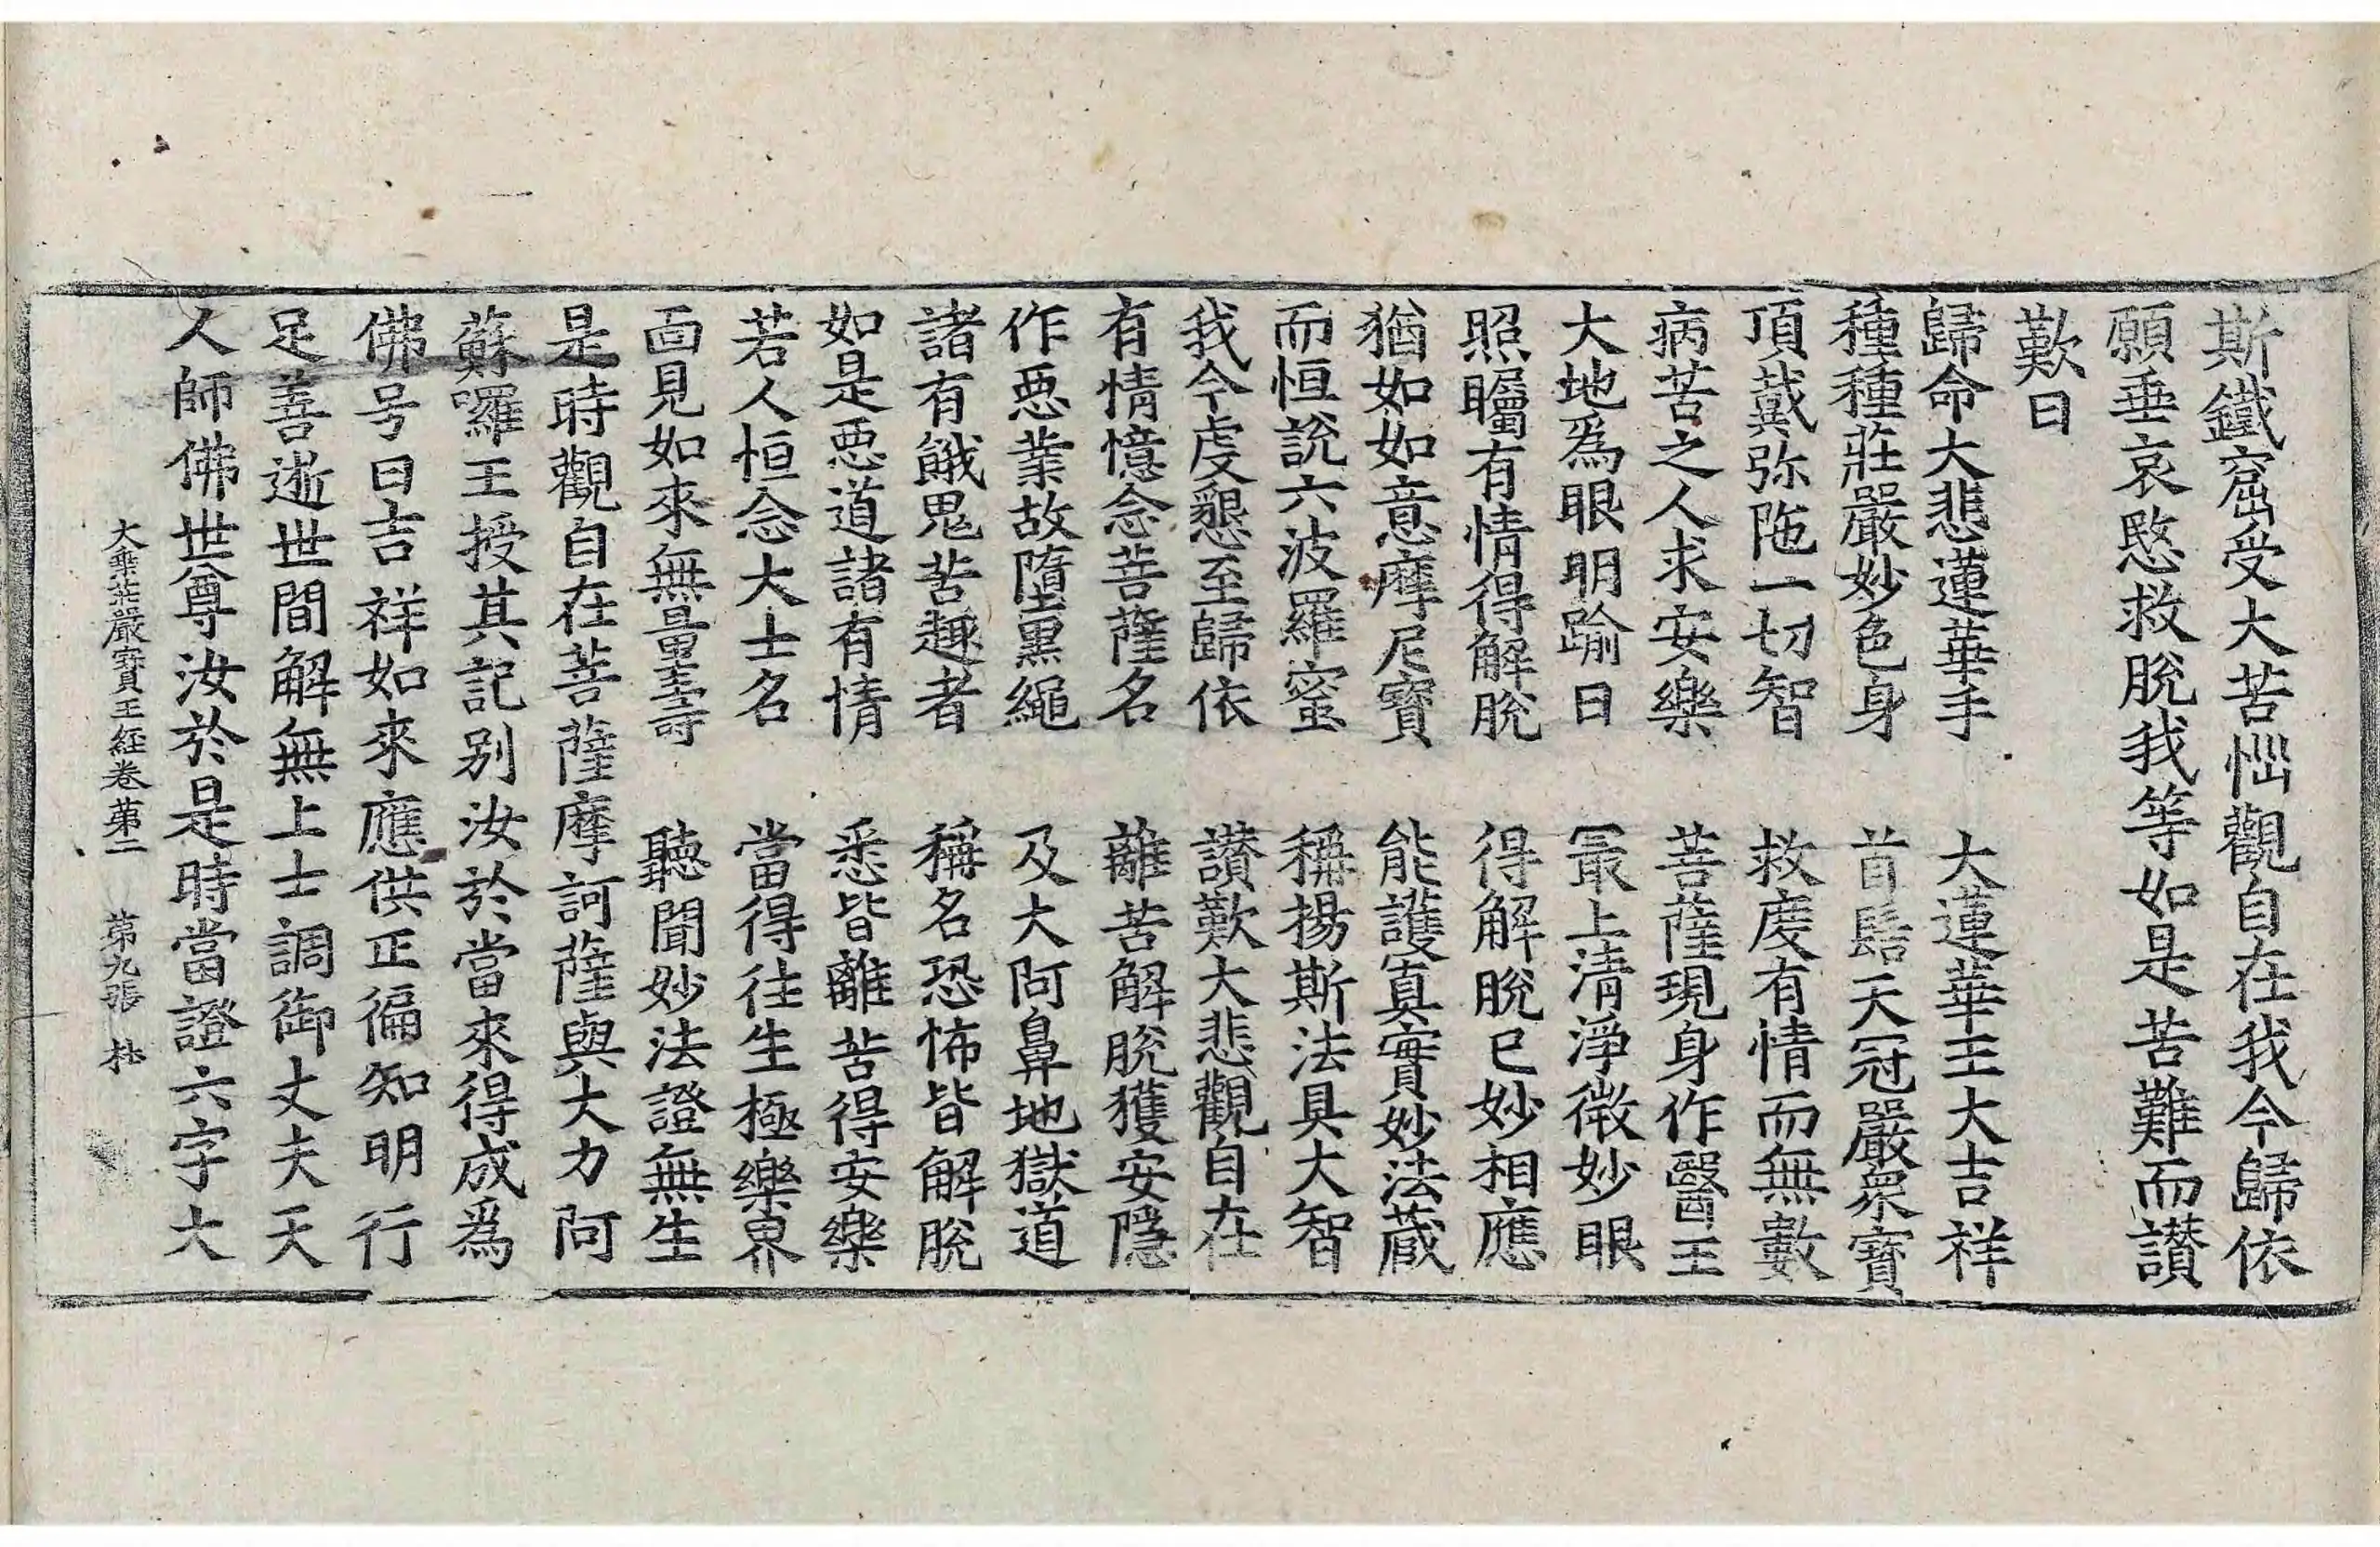 斯鐵窟受大苦惱觀自在我今歸依
願垂哀愍救脫我等如是苦難而讃
歎曰
歸命大悲蓮華手　大蓮華王大吉祥
種種莊嚴妙色身　首髻天冠嚴衆寶
頂戴弥陁一切智　救度有情而無數
病苦之人求安樂　菩薩現身作醫王
大地爲眼明踰日　最上清淨微妙眼
照矚有情得解脫　得解脫已妙相應
猶如如意摩尼寶　能護真實妙法藏
而恒說六波羅蜜　稱揚斯法具大智
我今虔懇至歸依　讃歎大悲觀自在
有情憶念菩薩名　離苦解脫獲安隱
作惡業故墮黑繩　及大阿鼻地獄道
諸有餓鬼苦趣者　稱名恐怖皆解脫
如是惡道諸有情　悉皆離苦得安樂
若人恒念大士名　當得往生極樂界
面見如來無量壽　聽聞妙法證無生
是時觀自在菩薩摩訶薩與大力阿
蘇囉王授其記別汝於當來得成爲
佛号曰吉祥如來應供正徧知明行
足善逝世間解無上士調御丈夫天
人師佛世尊汝於是時當證六字大
大乗莊嚴寶王經卷第二　第九張